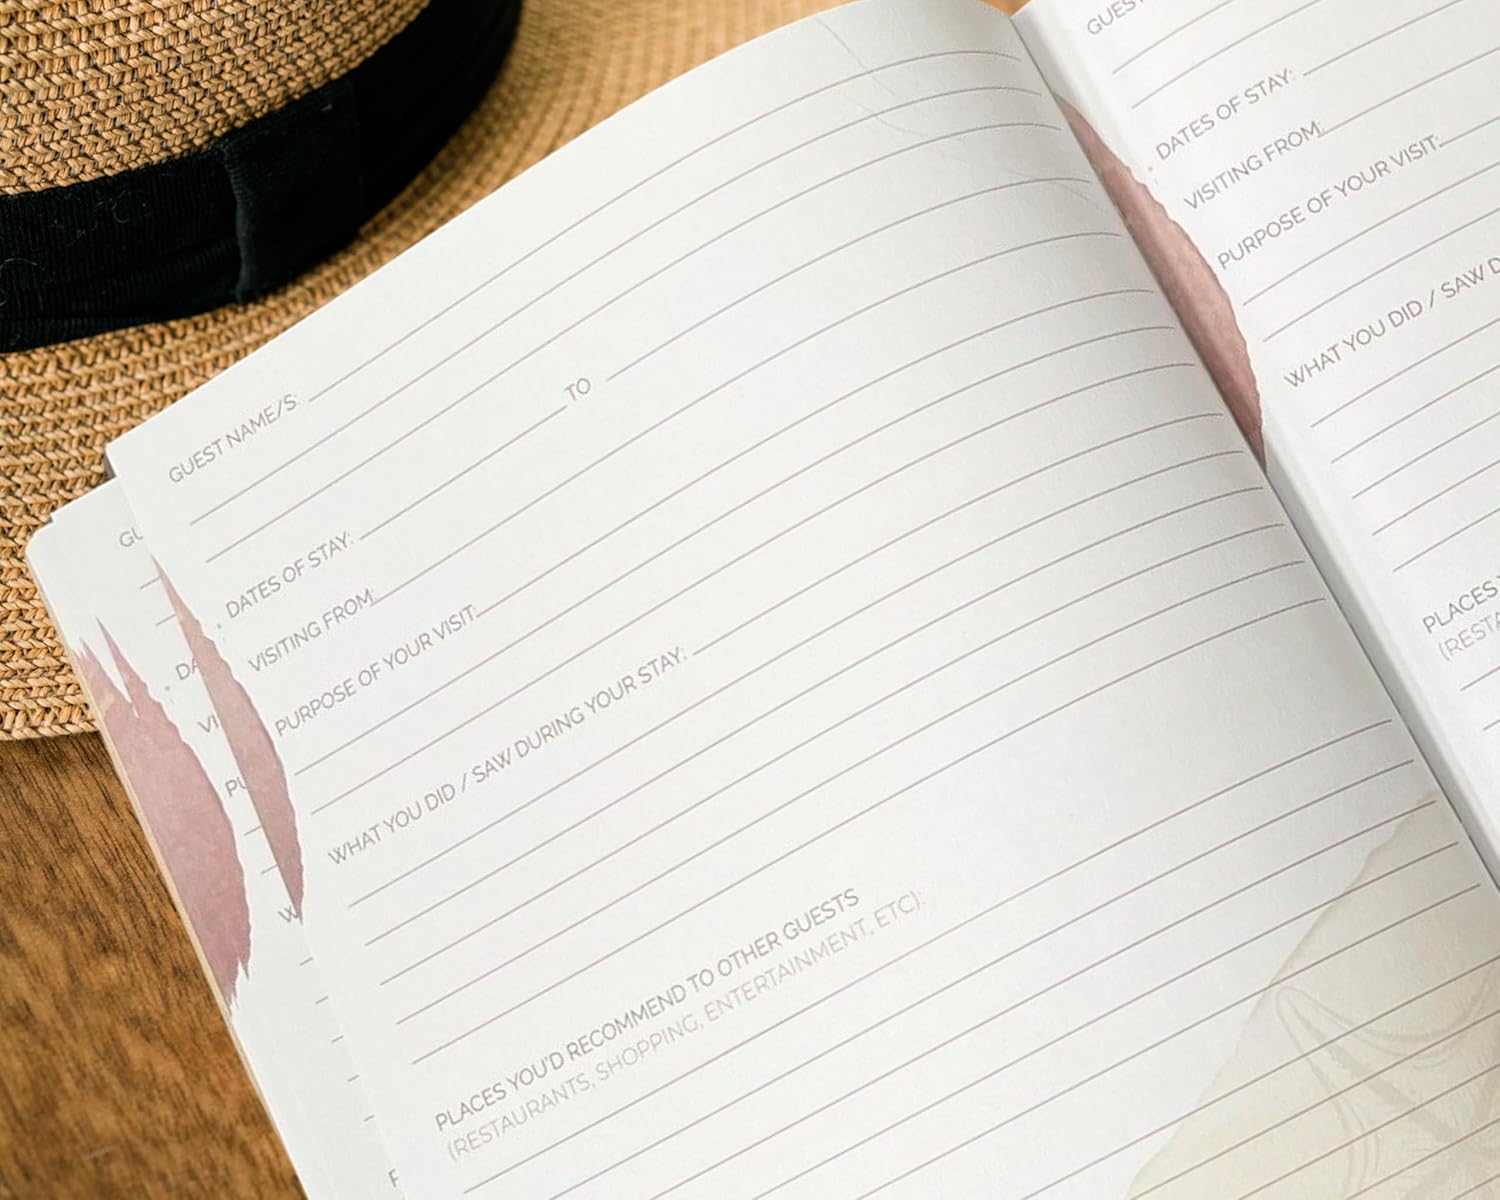 GUEST NAME/S:
DATES OF STAY: TO
VISITING FROM:
PURPOSE OF YOUR VISIT:
WHAT YOU DID / SAW DURING YOUR STAY:
PLACES YOU'D RECOMMEND TO OTHER GUESTS
(RESTAURANTS, SHOPPING, ENTERTAINMENT, ETC):
GUEST
DATES OF STAY:
VISITING FROM:
PURPOSE OF YOUR VISIT:
WHAT YOU DID / SAW D
PLACES
(RESTA
GU
DA
VI
PU
W